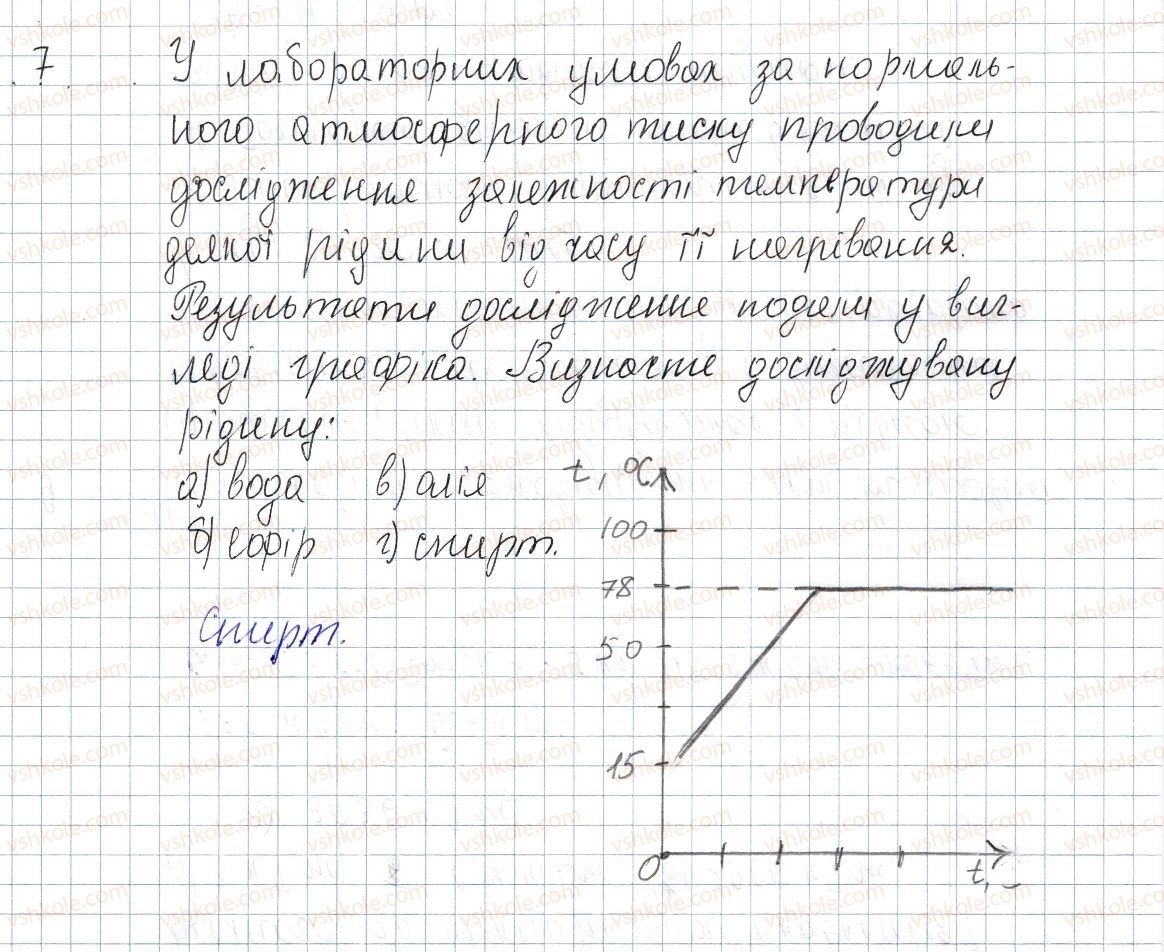 7 У лабораторних умовах за нормаль-
ного атмосферного тиску проводили
дослідження залежності температури
деякої рідини від часу її нагрівання.
Результати дослідження подали у виг-
ляді графіка. Визначте досліджувану
рідину:
а) вода в) олія
б) ефір г) спирт.
Спирт.
t, °C
100
78
50
15
0
t,
vshkole.com